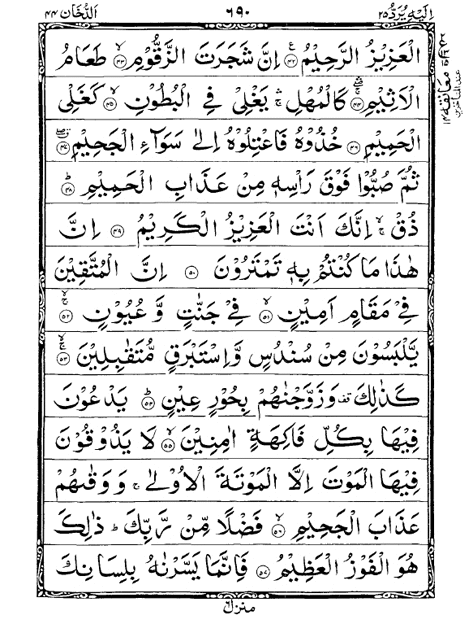 اِلَيْهِ يُرَدُّ ٢٥ ٦٩٠ الدُّخَان ٤٤
الْعَزِيْزُ الرَّحِيْمُ ﴿٤٢﴾ اِنَّ شَجَرَتَ الزَّقُّوْمِ ﴿٤٣﴾ طَعَامُ
الْاَثِيْمِ ﴿٤٤﴾ كَالْمُهْلِ ۛ يَغْلِىْ فِى الْبُطُوْنِ ﴿٤٥﴾ كَغَلْىِ
الْحَمِيْمِ ﴿٤٦﴾ خُذُوْهُ فَاعْتِلُوْهُ اِلٰى سَوَآءِ الْجَحِيْمِ ﴿٤٧﴾
ثُمَّ صُبُّوْا فَوْقَ رَاْسِهٖ مِنْ عَذَابِ الْحَمِيْمِ ﴿٤٨﴾
ذُقْ ۚ اِنَّكَ اَنْتَ الْعَزِيْزُ الْكَرِيْمُ ﴿٤٩﴾ اِنَّ
هٰذَا مَا كُنْتُمْ بِهٖ تَمْتَرُوْنَ ﴿٥٠﴾ اِنَّ الْمُتَّقِيْنَ
فِىْ مَقَامٍ اَمِيْنٍ ﴿٥١﴾ فِىْ جَنّٰتٍ وَّ عُيُوْنٍ ﴿٥٢﴾
يَّلْبَسُوْنَ مِنْ سُنْدُسٍ وَّ اِسْتَبْرَقٍ مُّتَقٰبِلِيْنَ ﴿٥٣﴾
كَذٰلِكَ ۫ وَزَوَّجْنٰهُمْ بِحُوْرٍ عِيْنٍ ﴿٥٤﴾ يَدْعُوْنَ
فِيْهَا بِكُلِّ فَاكِهَةٍ اٰمِنِيْنَ ﴿٥٥﴾ لَا يَذُوْقُوْنَ
فِيْهَا الْمَوْتَ اِلَّا الْمَوْتَةَ الْاُوْلٰى ۚ وَوَقٰىهُمْ
عَذَابَ الْجَحِيْمِ ﴿٥٦﴾ فَضْلًا مِّنْ رَّبِّكَ ؕ ذٰلِكَ
هُوَ الْفَوْزُ الْعَظِيْمُ ﴿٥٧﴾ فَاِنَّمَا يَسَّرْنٰهُ بِلِسَانِكَ
منزل ٦